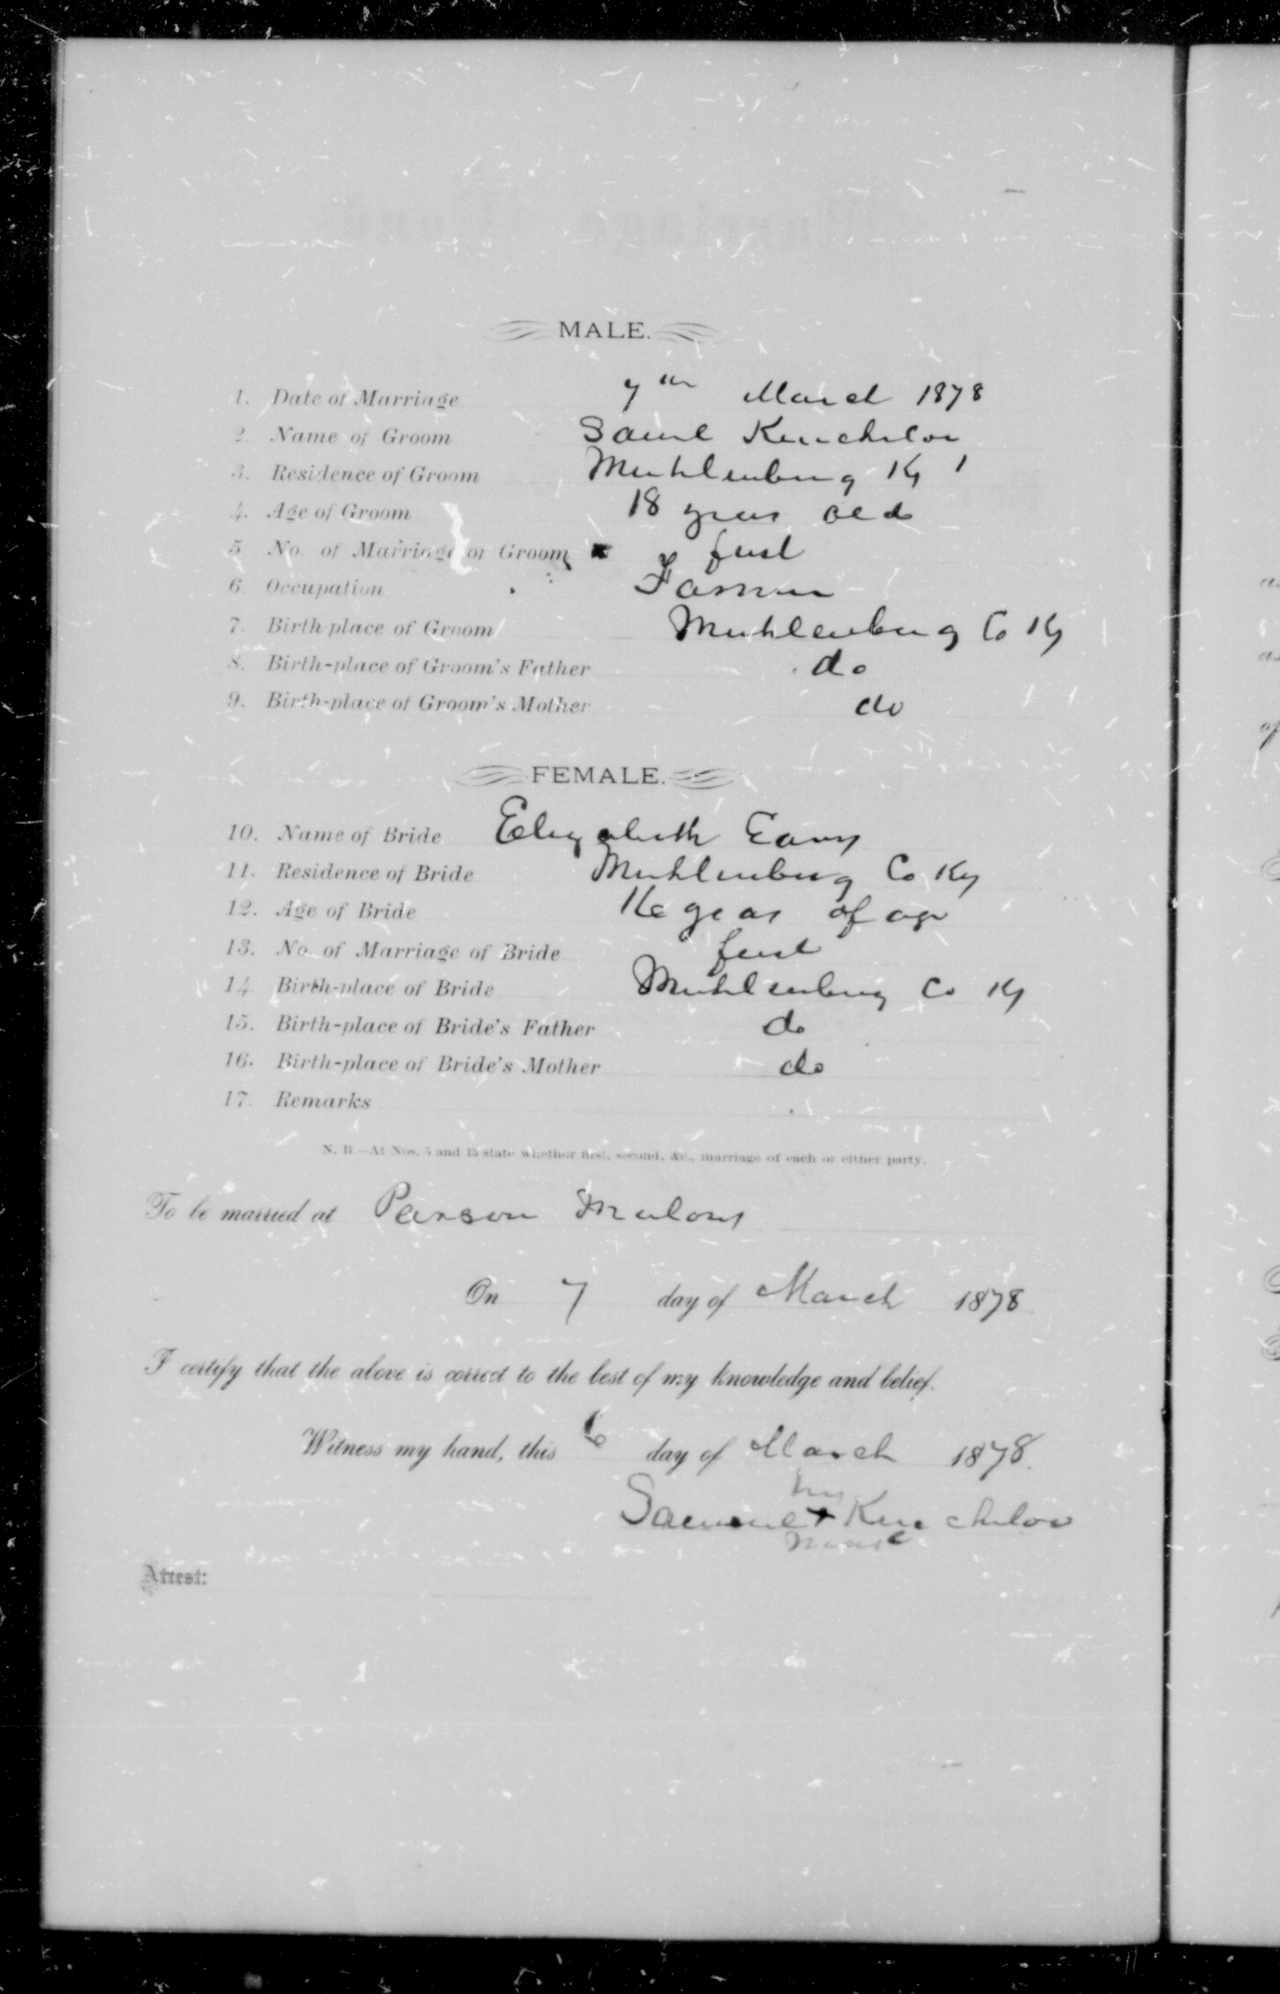 MALE.
1. Date of Marriage 7th March 1878
2. Name of Groom Saml Kincheloe
3. Residence of Groom Muhlenburg Ky
4. Age of Groom 18 years old
5 No. of Marriage of Groom first
6. Occupation Farmer
7. Birth-place of Groom Muhlenburg Co Ky
8. Birth-place of Groom's Father do
9. Birth-place of Groom's Mother do
FEMALE.
10. Name of Bride Elizabeth
11. Residence of Bride Muhlenburg Co Ky
12. Age of Bride 16 years of age
13. No. of Marriage of Bride first
14 Birth-place of Bride Muhlenburg Co Ky
15. Birth-place of Bride's Father do
16. Birth-place of Bride's Mother do
17. Remarks
N. B.—At Nos. 5 and 15 state whether first, second, &c., marriage of each or either party.
To be married at Parson
On 7 day of March 1878
I certify that the above is correct to the best of my knowledge and belief.
Witness my hand, this 6 day of March 1878.
his
Samuel + Kincheloe
mark
Attest: